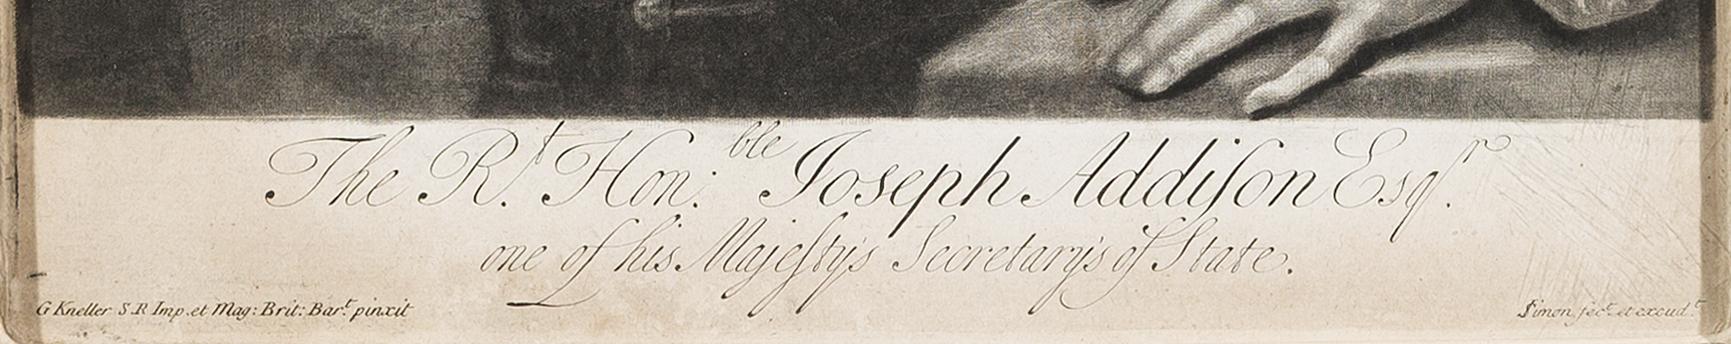 The R.ᵗ Hon:ᵇˡᵉ Joseph Addiſon Esqʳ.
one of his Majeſty's Secretary's of State.
G Kneller S.R Imp. et Mag: Brit: Bar.ᵗ pinxit
Simon fec.ᵗ et excud.ᵗ